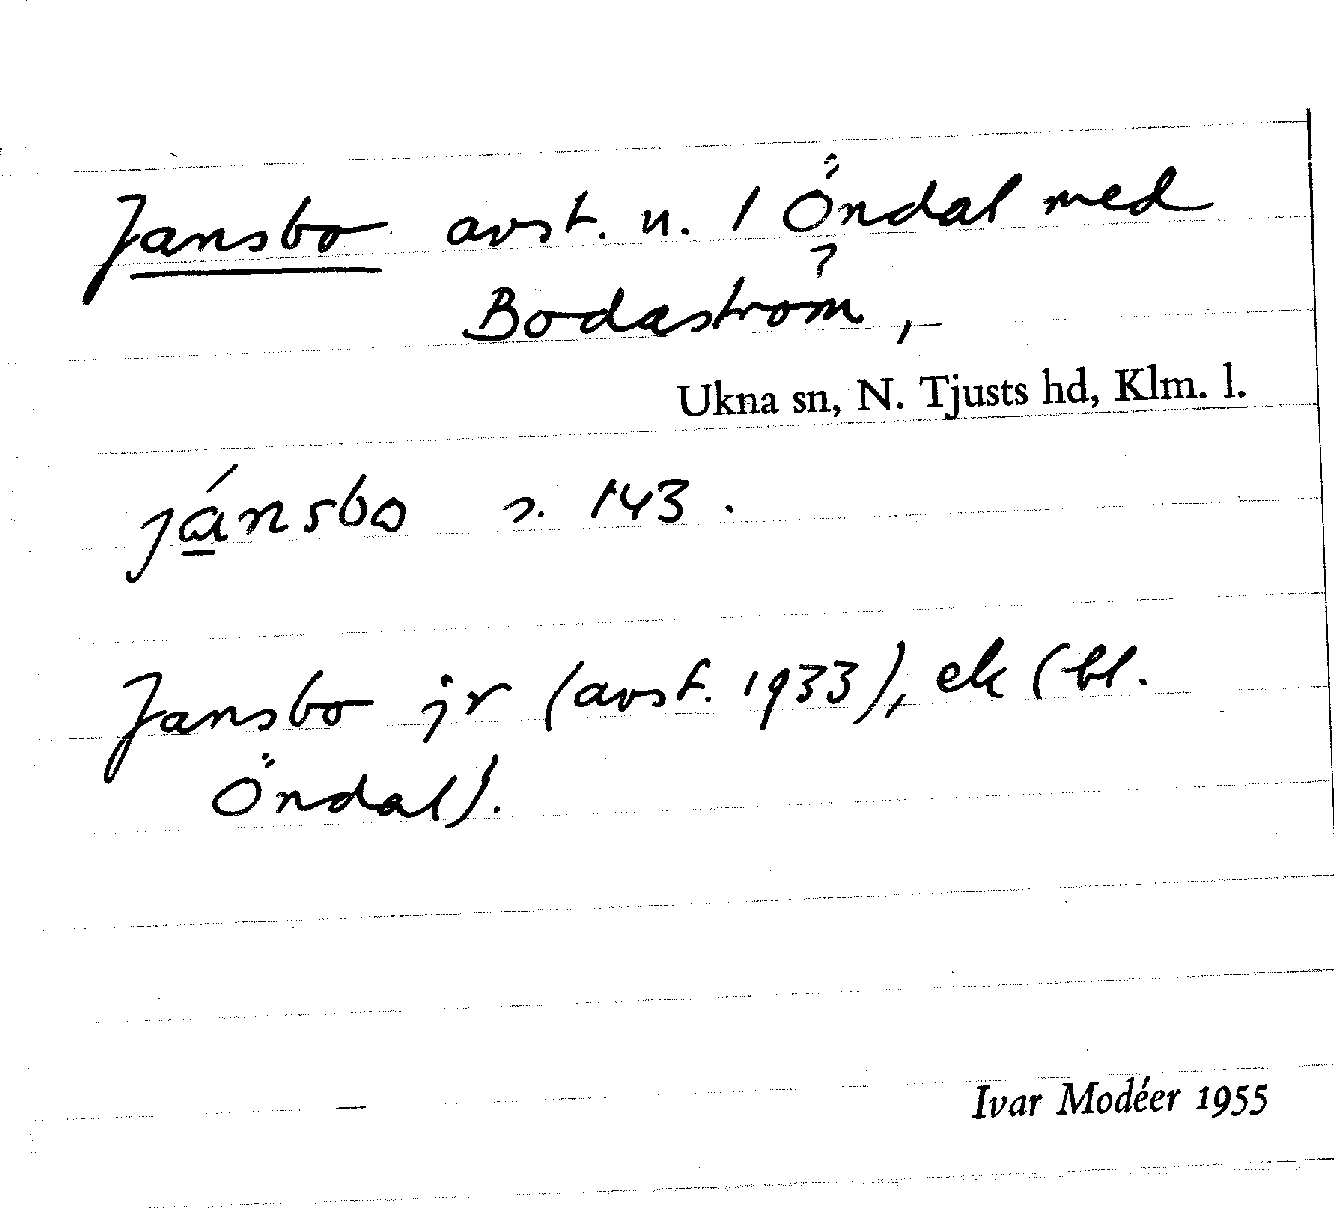 Jansbo avst. u. 1 Öndal med
?
Bodaström,
Ukna sn, N. Tjusts hd, Klm. l.
jánsbo s. 143.
Jansbo jr (avst. 1933), ek (bl.
Öndal).
Ivar Modéer 1955